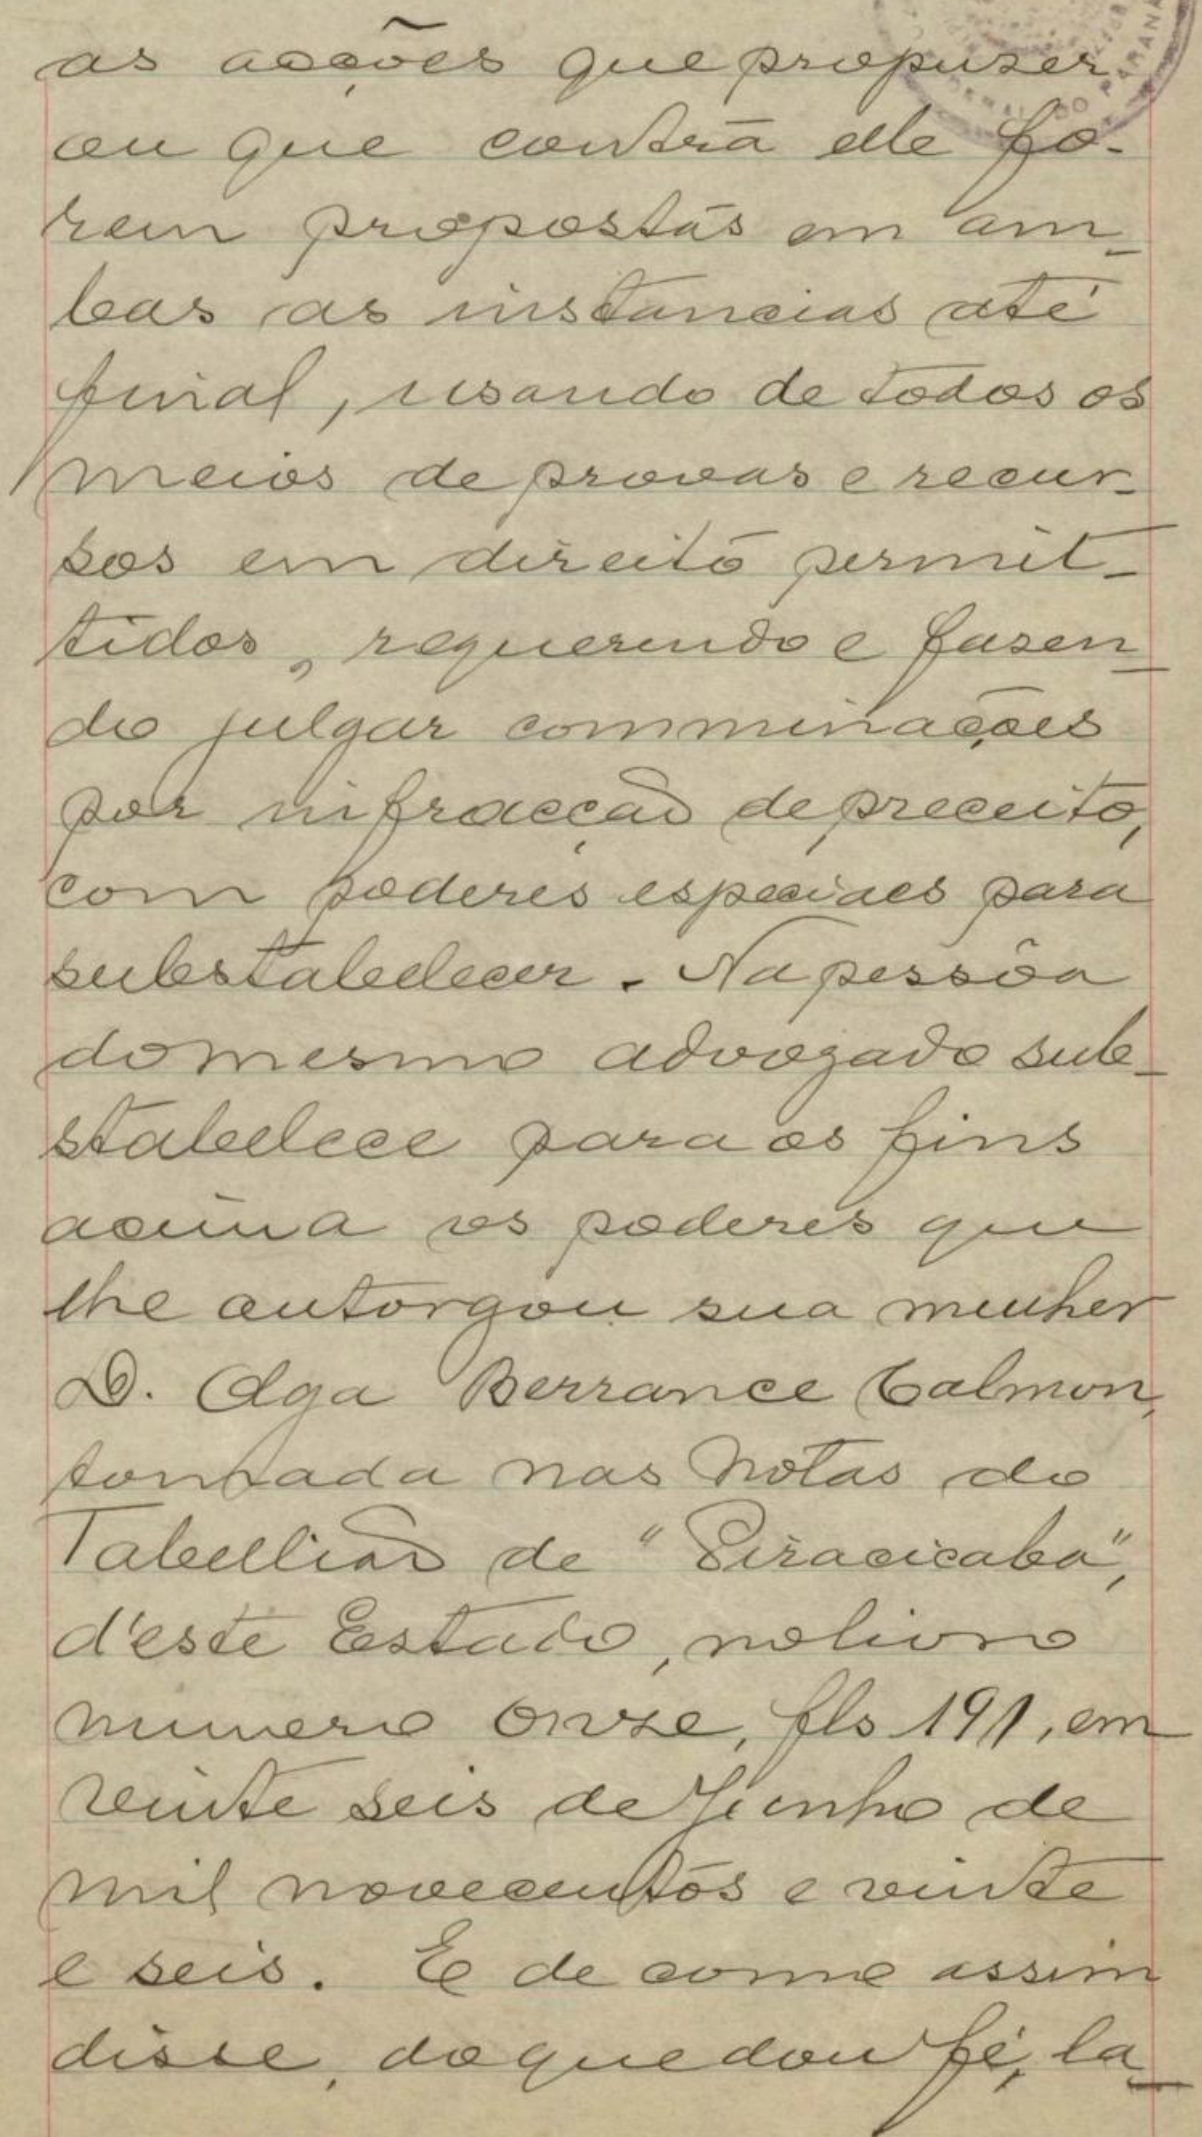 as acções que propuzer
ou que contra elle fo-
rem propostas em am-
bas as instancias até
final, usando de todos os
meios de provas e recur-
sos em direito permit-
tidos, requerendo e fasen-
do julgar comminações
por infracção de preceito,
com poderes especiaes para
substabelecer. Na pessôa
do mesmo advogado sub-
stabelece para os fins
acima os poderes que
lhe outorgou sua mulher
D. Olga Berrance Calmon,
tomada nas notas do
Tabellião de "Piracicaba",
d'este Estado, no livro
numero onze, fls 191, em
vinte seis de Junho de
mil novecentos e vinte
e seis. E de como assim
disse, do que dou fé, la-
DO PARANÁ